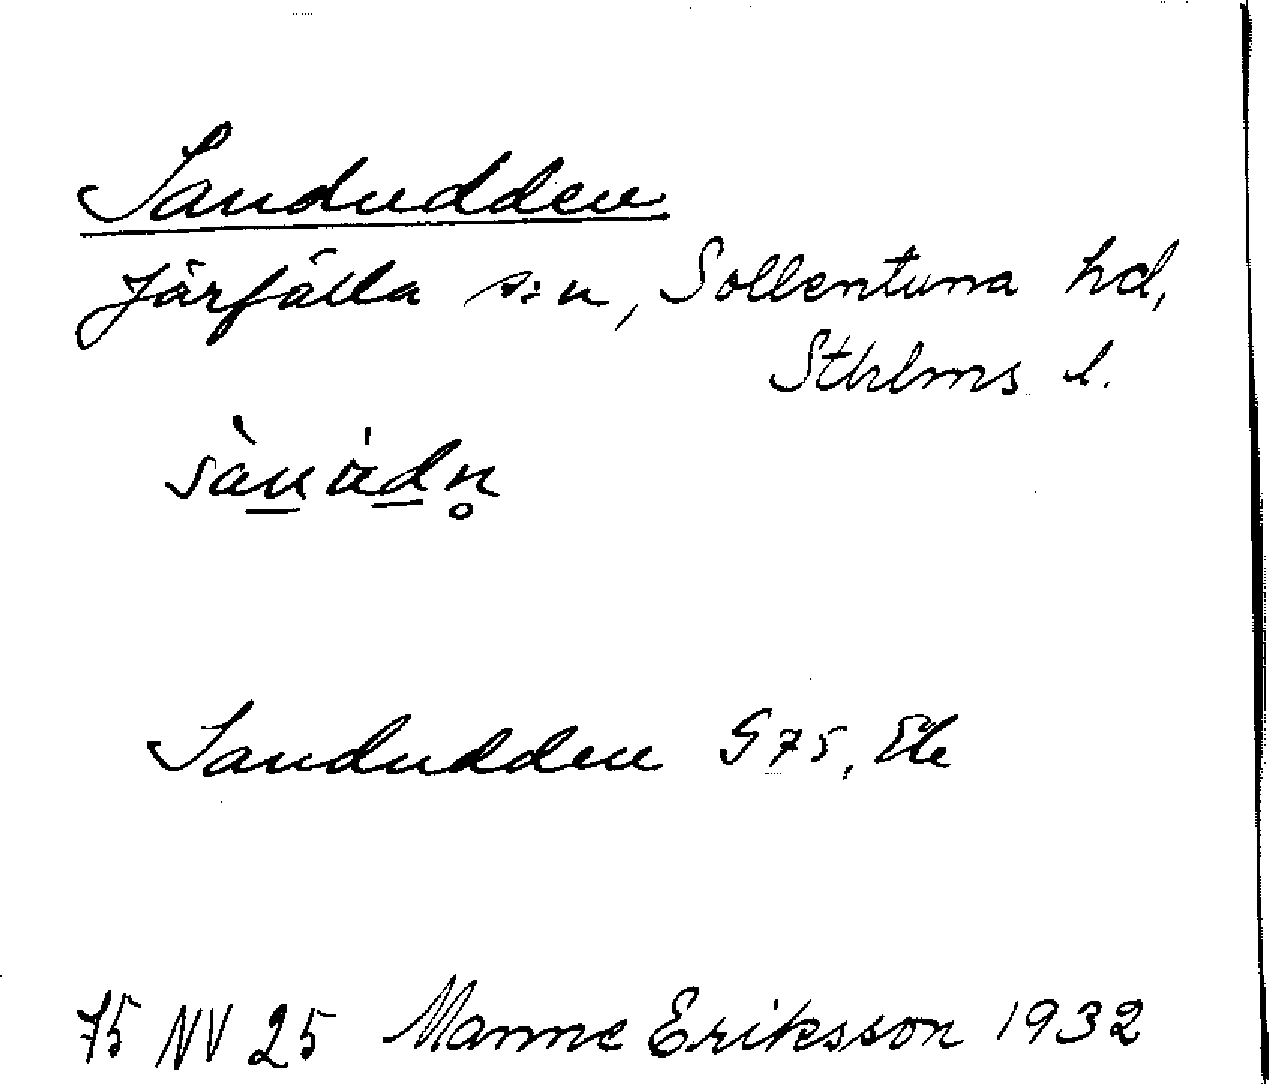 Sandudden
Järfälla s:n, Sollentuna hd,
Sthlms l.
sàn ùdn̥
Sandudden G 75, Ek
75 NV 25 Manne Eriksson 1932